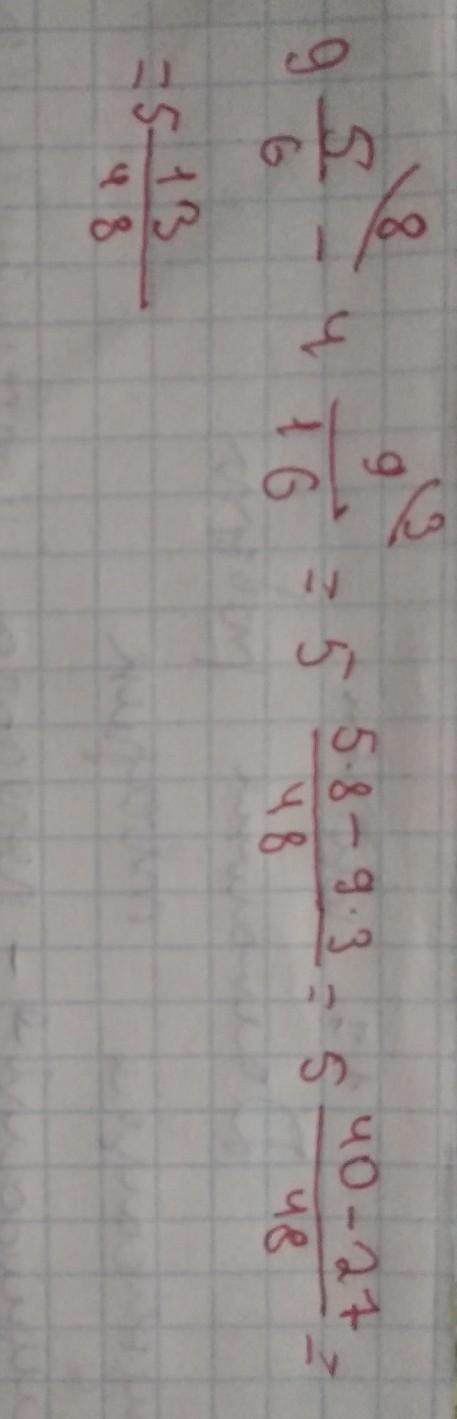 9 5/6 \8 - 4 9/16 \3 = 5 5·8-9·3/48 = 5 40-27/48 =
= 5 13/48